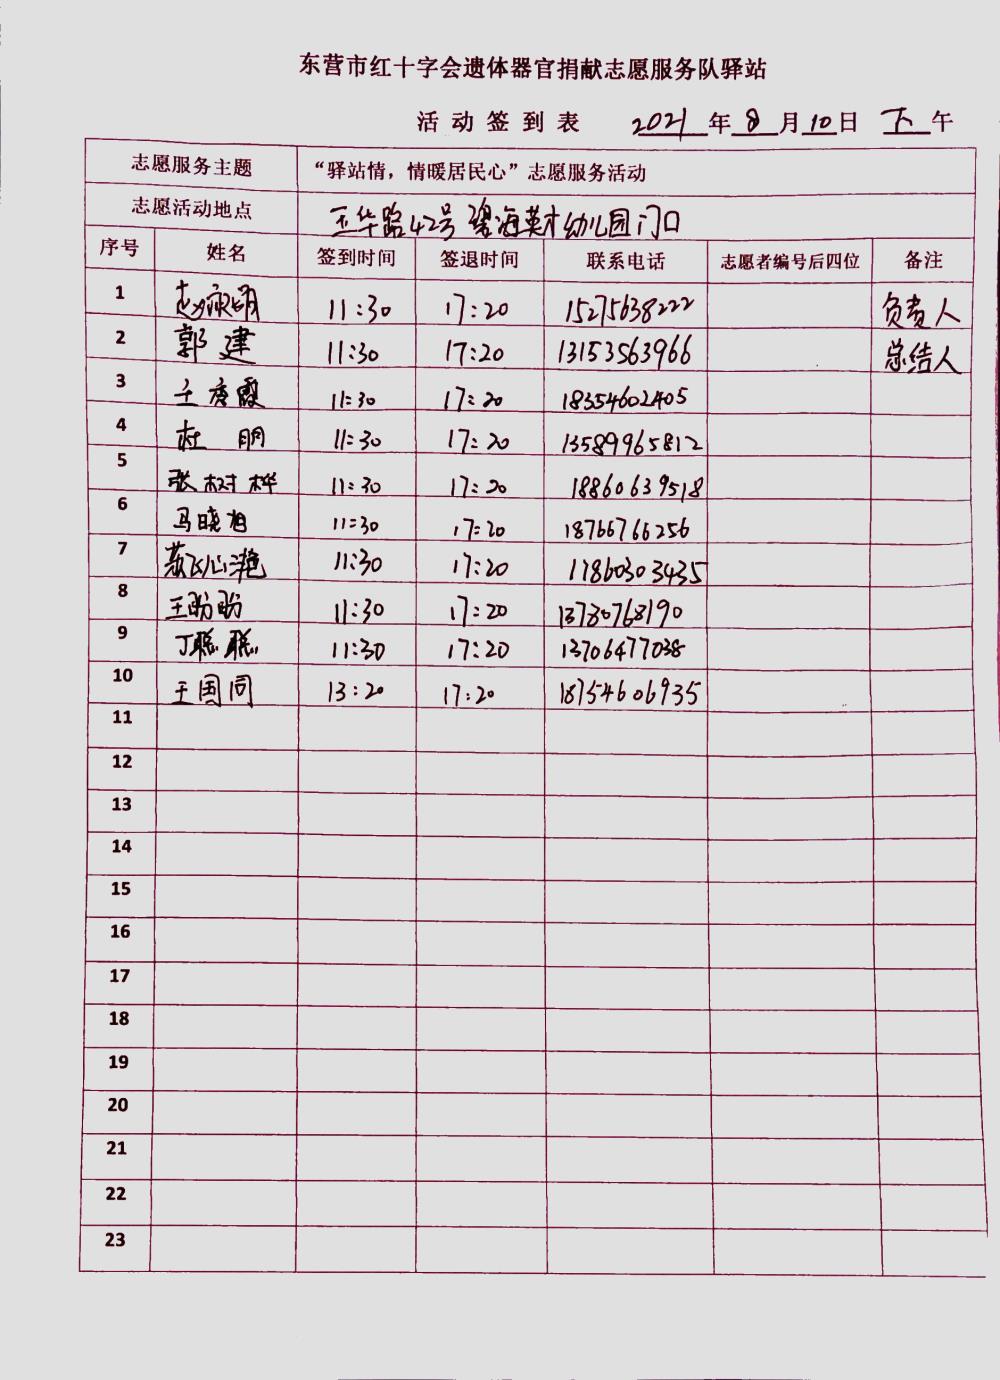 东营市红十字会遗体器官捐献志愿服务队驿站
活动签到表 2021年8月10日 下午
志愿服务主题 “驿站情，情暖居民心”志愿服务活动
志愿活动地点 玉华路42号碧海英才幼儿园门口
序号 姓名 签到时间 签退时间 联系电话 志愿者编号后四位 备注
1 赵永明 11:30 17:20 15275638222 负责人
2 郭建 11:30 17:20 13153563966 总结人
3 王彦霞 11:30 17:20 18354602405
4 杜明 11:30 17:20 13589965812
5 张树桦 11:30 17:20 18860639518
6 马晓旭 11:30 17:20 18766766256
7 11:30 17:20 17860303435
8 王盼盼 11:30 17:20 13780768190
9 丁聪聪 11:30 17:20 13706477038
10 王国同 13:20 17:20 18754606935
11
12
13
14
15
16
17
18
19
20
21
22
23